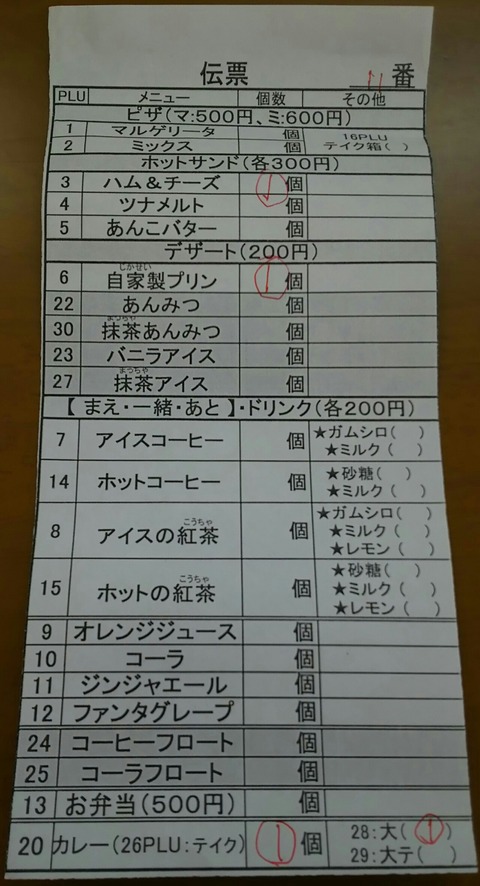 伝票 11番
PLU メニュー 個数 その他
ピザ(マ:500円、ミ:600円)
1 マルゲリータ 個 16PLU
2 ミックス 個 テイク箱( )
ホットサンド(各300円)
3 ハム&チーズ 1個
4 ツナメルト 個
5 あんこバター 個
デザート(200円)
じかせい
6 自家製プリン 1個
22 あんみつ 個
まっちゃ
30 抹茶あんみつ 個
23 バニラアイス 個
まっちゃ
27 抹茶アイス 個
【まえ・一緒・あと】・ドリンク(各200円)
7 アイスコーヒー 個 ★ガムシロ( )
★ミルク( )
14 ホットコーヒー 個 ★砂糖( )
★ミルク( )
★ガムシロ( )
こうちゃ
8 アイスの紅茶 個 ★ミルク( )
★レモン( )
★砂糖( )
こうちゃ
15 ホットの紅茶 個 ★ミルク( )
★レモン( )
9 オレンジジュース 個
10 コーラ 個
11 ジンジャエール 個
12 ファンタグレープ 個
24 コーヒーフロート 個
25 コーラフロート 個
13 お弁当(500円) 個
20 カレー(26PLU:テイク) 1個 28:大(1)
29:大テ( )